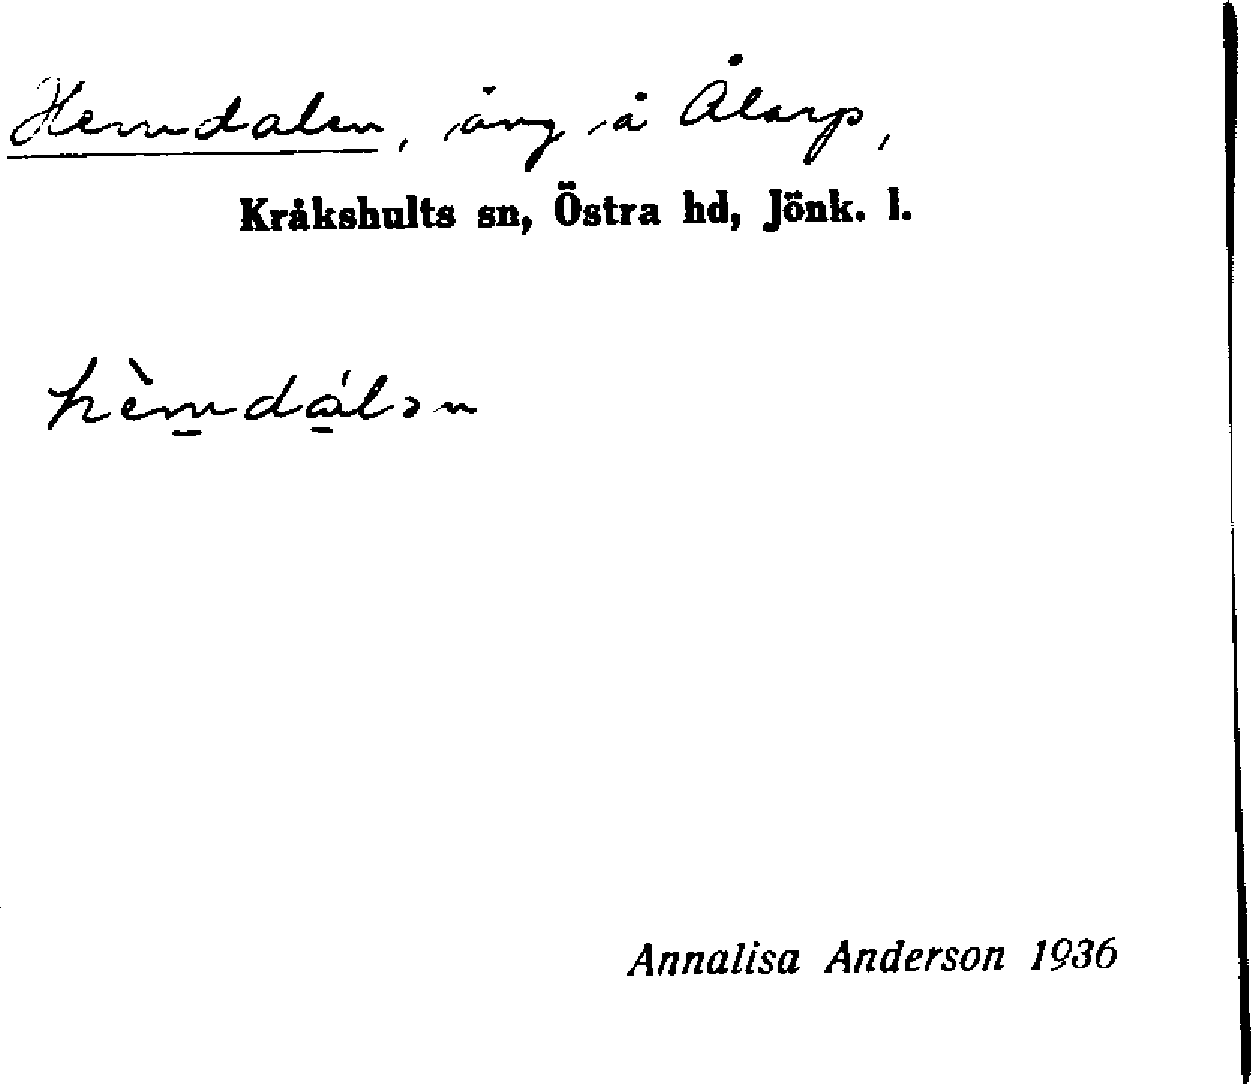 Hemdalen, äng å Ålarp,
Kråkshults sn, Östra hd, Jönk. l.
hèm̲dá̲lən
Annalisa Anderson 1936